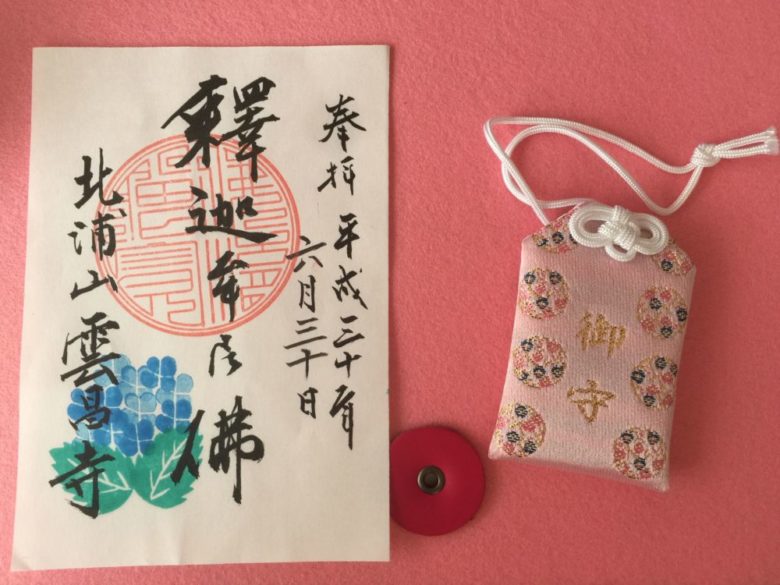 奉拝 平成三十年
六月三十日
釋迦牟尼佛
北浦山 雲昌寺
御守